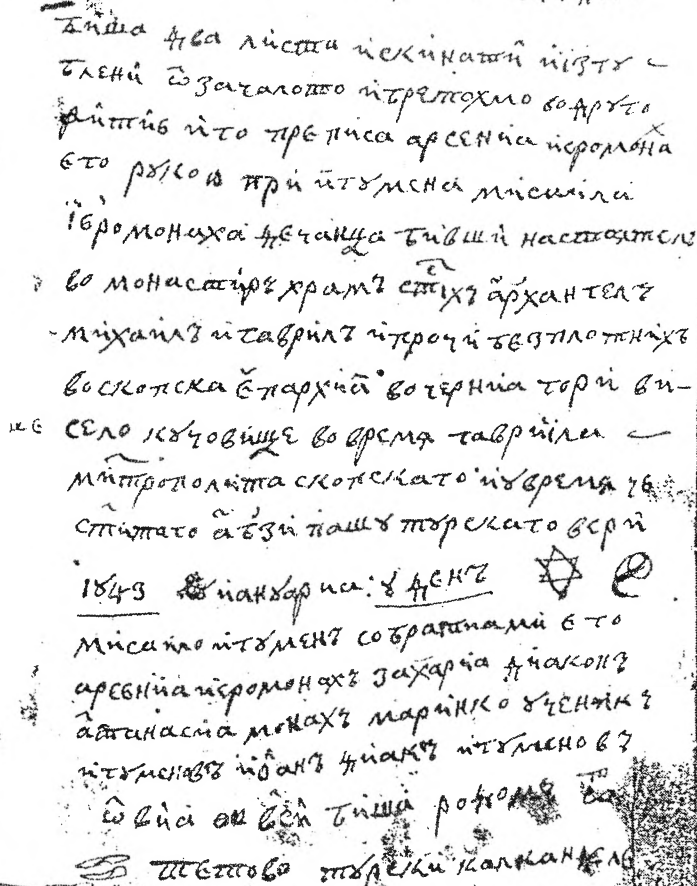 биша два листа искинати и изгу
блени ѿ зачалото и трето҃хмо во друго
его рукоѧ при игумена мисаила
Їеромонаха дечанца бивши настоѧтель
во монастирь храмъ ст҃їхъ архангелъ
михаилъ и гавриилъ и прочи безплотнихъ
во скопска епархиа во черниа гори ви-
село кучовище во время гавриила
митрополита скопскаго и у время че
ститаго авзи пашу турскаго вери
1843 иануариа: у денъ
мисаило игуменъ со братиами его
арсениа иеромонахъ захариа диаконъ
атанасиа монахъ маринко ученикъ
игуменовъ иованъ диакъ игуменовъ
ѿ вїа вси биша родомъ
тетово турски калкандєле